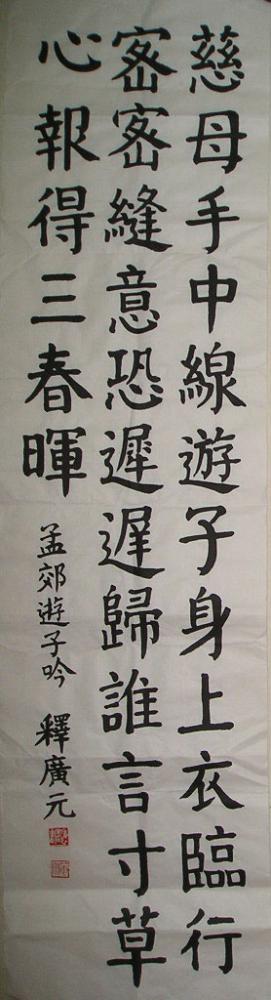 慈母手中線遊子身上衣臨行
密密縫意恐遲遲歸誰言寸草
心報得三春暉
孟郊遊子吟 釋廣元